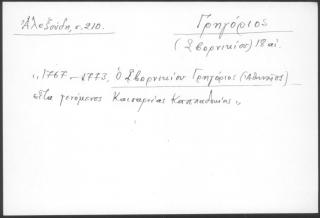 Ἀλεξούδη, σ. 210.
Γρηγόριος
(Σβορνικίου) 18 αἰ.
„ 1767 – 1773, Ὁ Σβορνικίου Γρηγόριος (Ἀθηναῖος)
εἶτα γενόμενος Καισαρείας Καππαδοκίας „